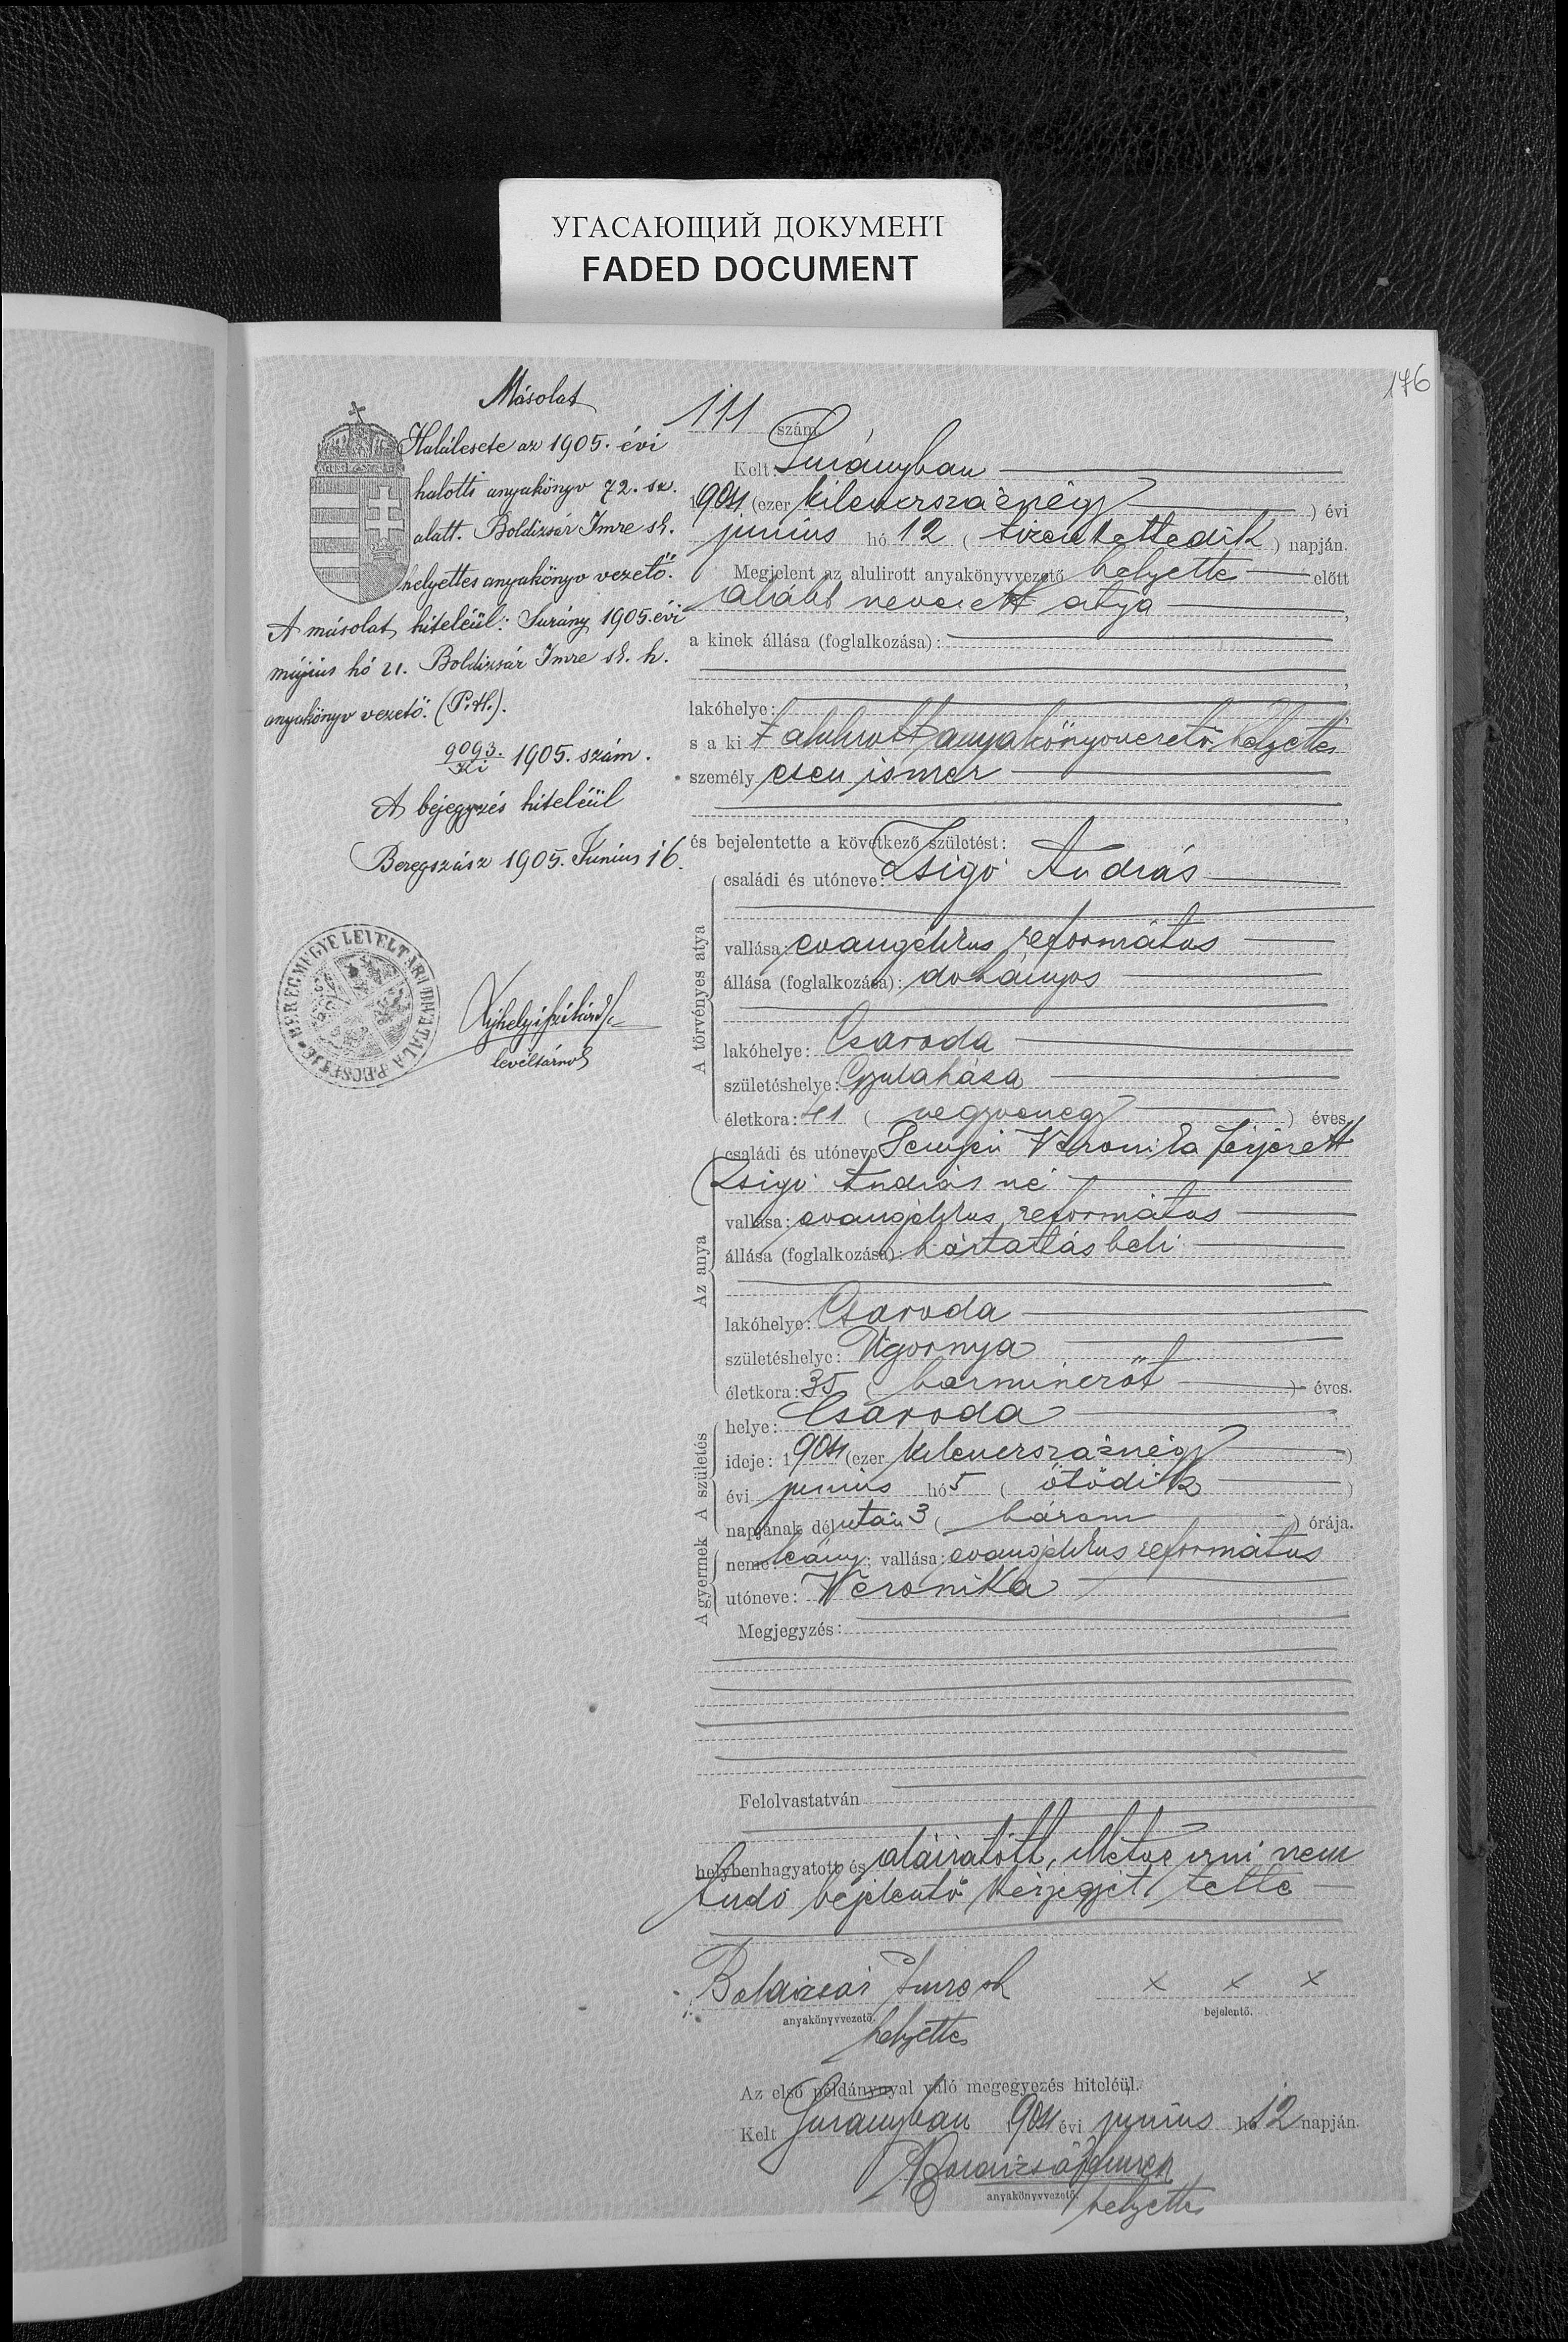 УГАСАЮЩИЙ ДОКУМЕНТ
FADED DOCUMENT
176
Másolat
Halálesete az 1905. évi
halotti anyakönyv 72. sz.
alatt. Boldizsár Imre sk.
helyettes anyakönyv vezető.
A másolat hiteléül: Surány 1905. évi
május hó 21. Boldizsár Imre sk. h.
anyakönyv vezető. (P.H.).
9093./Ki 1905. szám.
A bejegyzés hiteléül
Beregszász 1905. Június 16.
BEREGMEGYE LEVELTÁRI HIVATALA PECSETJE
levéltárnok
111 szám
Kelt: Surányban
1904 (ezer kilencszáznégy) évi
junius hó 12 ( tizenkettedik ) napján.
Megjelent az alulirott anyakönyvvezető helyette előtt
alább nevezett atya
a kinek állása (foglalkozása):
lakóhelye:
s a ki t alulirott anyakönyvvezető helyettes
személyesen ismer
és bejelentette a következő születést:
A törvényes atya
családi és utóneve: Zsigó András
vallása: evangélikus református
állása (foglalkozása): dohányos
lakóhelye: Csaroda
születéshelye: Gyulaháza
életkora: 41 ( negyvenegy ) éves.
Az anya
családi és utóneve Penyei Veronika férjezett
Zsigó Andrásné
vallása: evangélikus református
állása (foglalkozása): háztartásbeli
lakóhelye: Csaroda
születéshelye: Ugornya
életkora: 35 ( harmincöt ) éves.
A születés
helye: Csaroda
ideje: 1904 (ezer kilencszáznégy )
évi junius hó 5 ( ötödik )
napjának délután 3 ( három ) órája.
A gyermek
neme: leány; vallása: evangélikus református
utóneve: Veronika
Megjegyzés:
Felolvastatván
helybenhagyatott és aláiratott, illetve irni nem
tudó bejelentő kézjegyét tette
Boldizsár Imre sk
anyakönyvvezető.
helyettes
x x x
bejelentő.
Az első példánynyal való megegyezés hiteléül.
Kelt Surányban 1904 évi junius hó 12 napján.
Boldizsár Imre
anyakönyvvezető.
helyettes